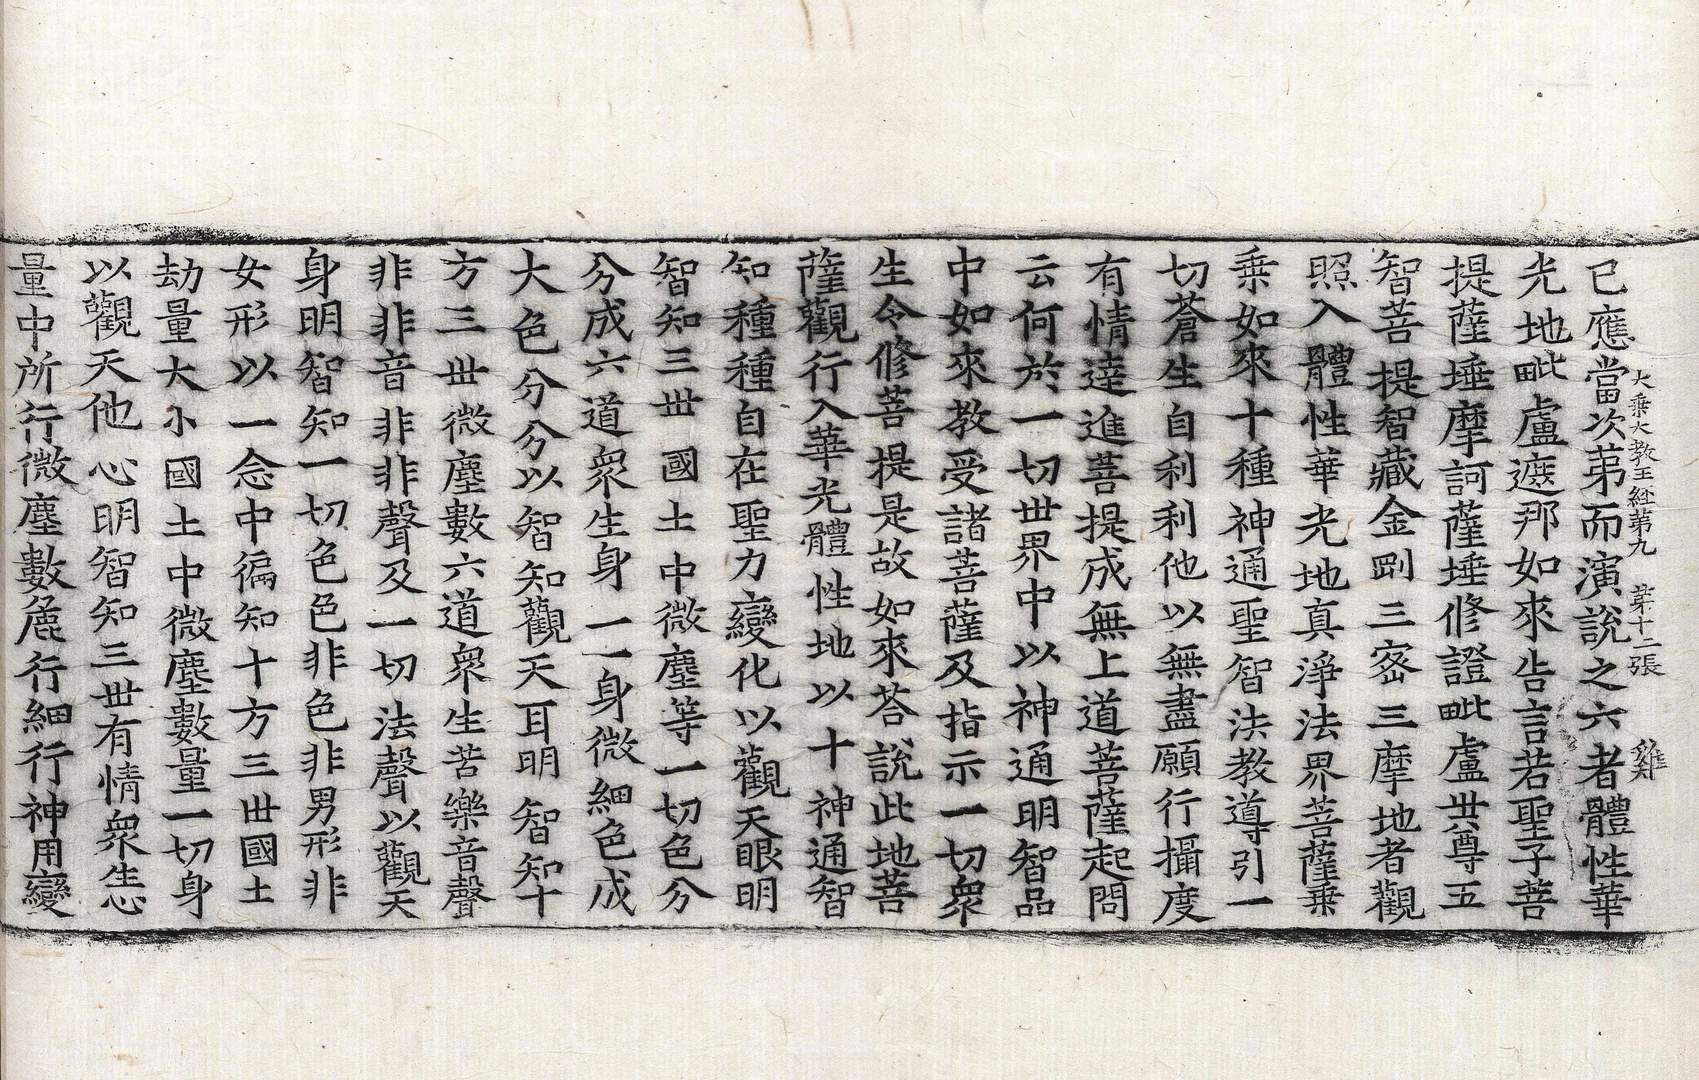 已應當次苐而演說之六者體性華
大乗大教王経苐九　苐十二張　雞
光地毗盧遮那如來告言若聖子菩
提薩埵摩訶薩埵修證毗盧世尊五
智菩提智藏金剛三宻三摩地者觀
照入體性華光地真淨法界菩薩乗
乗如來十種神通聖智法教導引一
切蒼生自利利他以無盡願行攝度
有情達進菩提成無上道菩薩起問
云何於一切世界中以神通明智品
中如來教受諸菩薩及指示一切衆
生令修菩提是故如來荅說此地菩
薩觀行入華光體性地以十神通智
知種種自在聖力變化以觀天眼明
智知三世國土中微塵等一切色分
分成六道衆生身一一身微細色成
大色分分以智知觀天耳明智知十
方三世微塵數六道衆生苦樂音聲
非非音非非聲及一切法聲以觀天
身明智知一切色色非色非男形非
女形以一念中徧知十方三世國土
劫量大小國土中微塵數量一切身
以觀天他心明智知三世有情衆生
量中所行微塵數麁行細行神用變